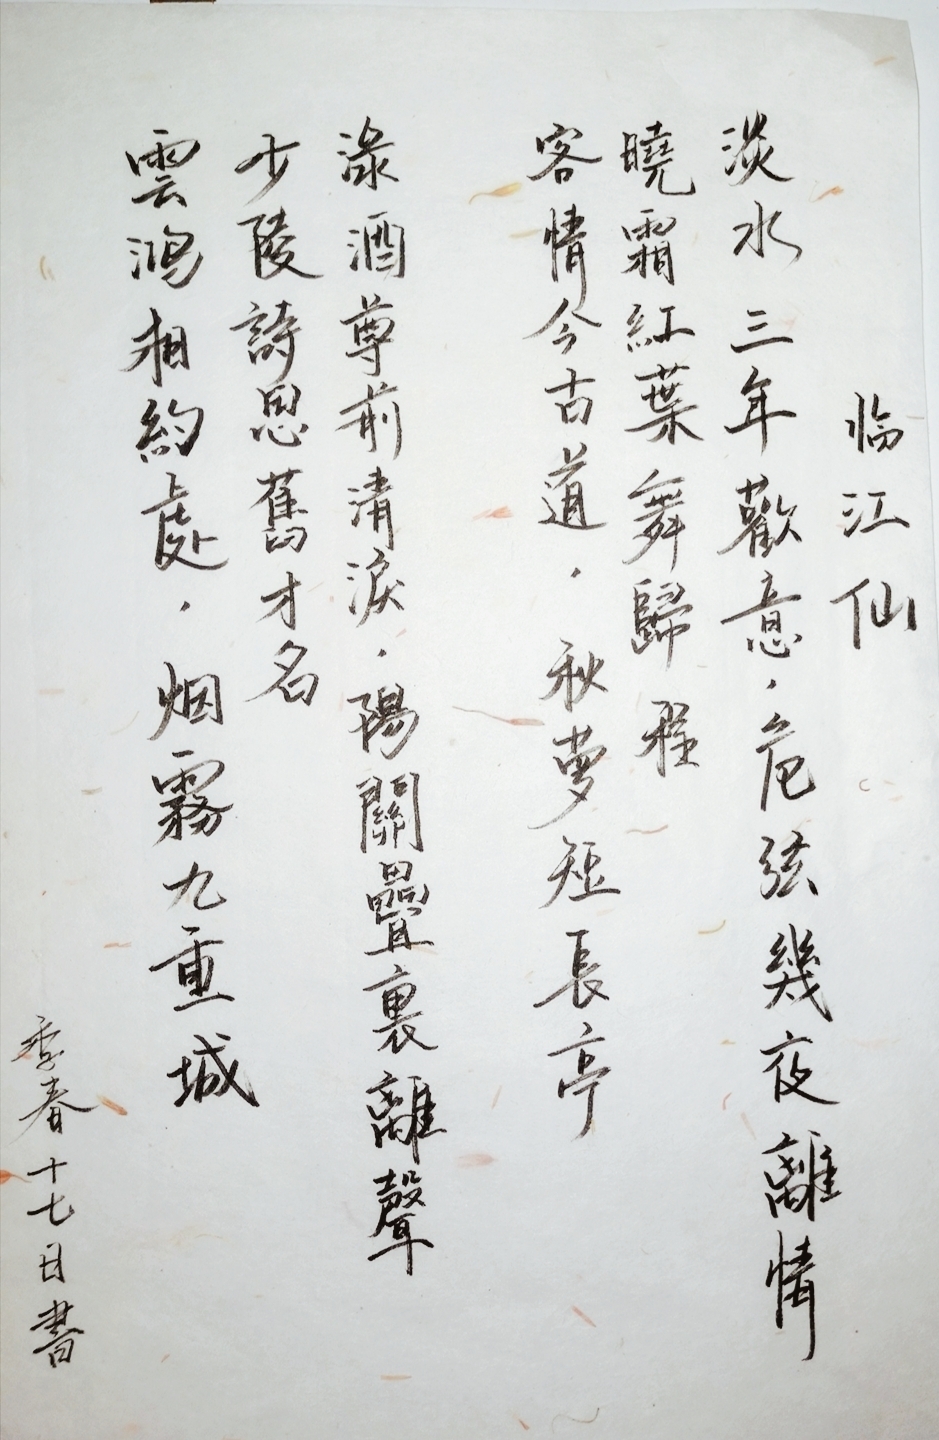 临江仙
淡水三年歡意，危弦幾夜離情
曉霜紅葉舞歸程
客情今古道，秋夢短長亭
渌酒尊前清淚，陽關疊裏離聲
少陵詩思舊才名
雲鴻相約處，烟霧九重城
季春十七日書